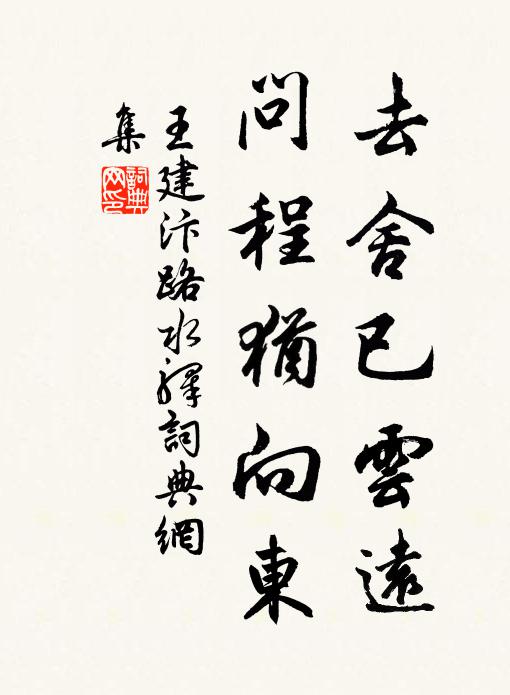 去舍已雲遠
問程猶向東
王建汴路水驛詞典網
集
詞典
网印